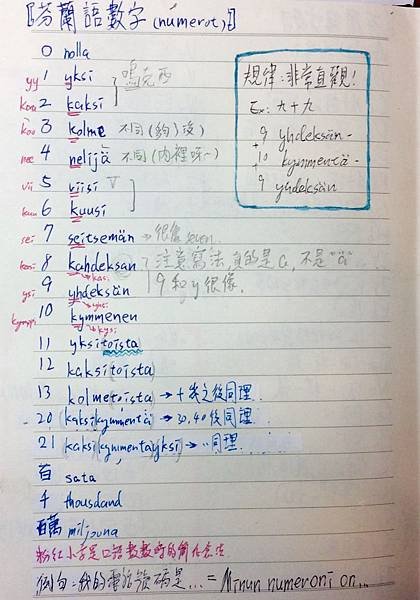 [芬蘭語數字 (numerot)]
0 nolla
yy 1 yksi 嗚克西
kaa 2 kaksi
koo 3 kolme 不同(鉤)沒
nee 4 neljä 不同(內裡呀~)
vii 5 viisi V
kuu 6 kuusi
sei 7 seitsemän → 很像 seven.
kasi 8 kahdeksan → 注意寫法,真的是a,不是"ä"
kasi
ysi 9 yhdeksän 9和y很像.
yhe
kymppi 10 kymmenen
kys
11 yksitoista
12 kaksitoista
13 kolmetoista → 十幾之後同理..
20 (kaksikymmentä) → 30,40後同理..
21 kaksikymmentäyksi → ..同理..
百 sata
千 thousdand
百萬 miljouna
粉紅小字是口語數數時的簡化念法
例句:我的電話號碼是... = Minun numeroni on...
規律:非常直觀!
Ex: 九十九
9 yhdeksän-
+
10 kymmentä-
+
9 yhdeksän